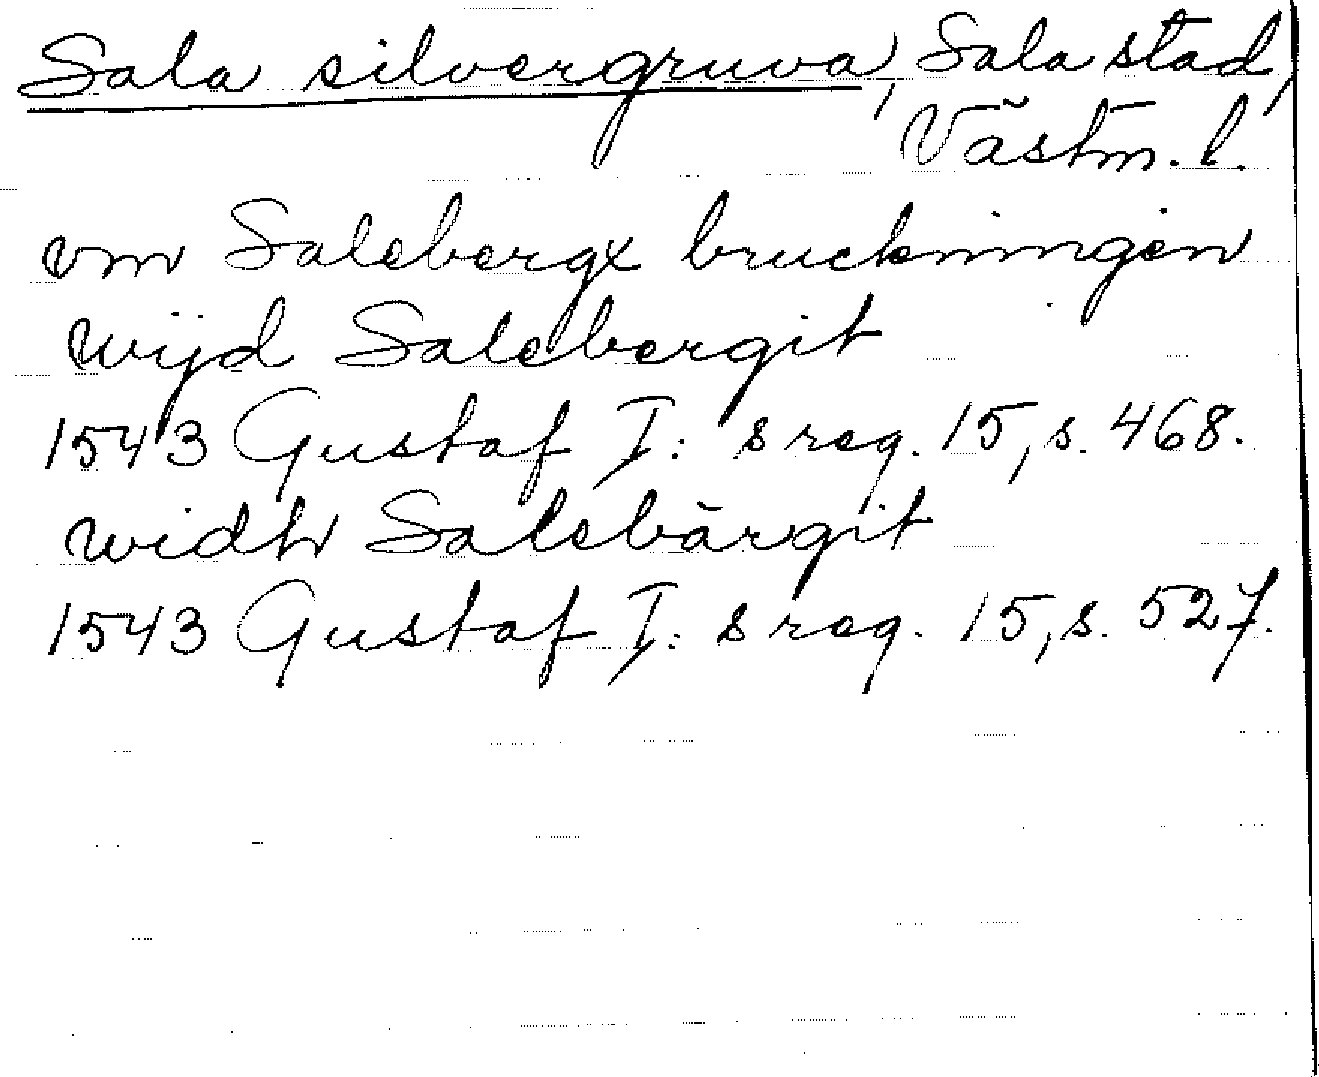 Sala silvergruva, Sala stad,
Västm. l.
vm Salebergx bruckningen
wijd Salebergit
1543 Gustaf I: s reg. 15, s. 468.
widh Salebärgit
1543 Gustaf I: s reg. 15, s. 527.